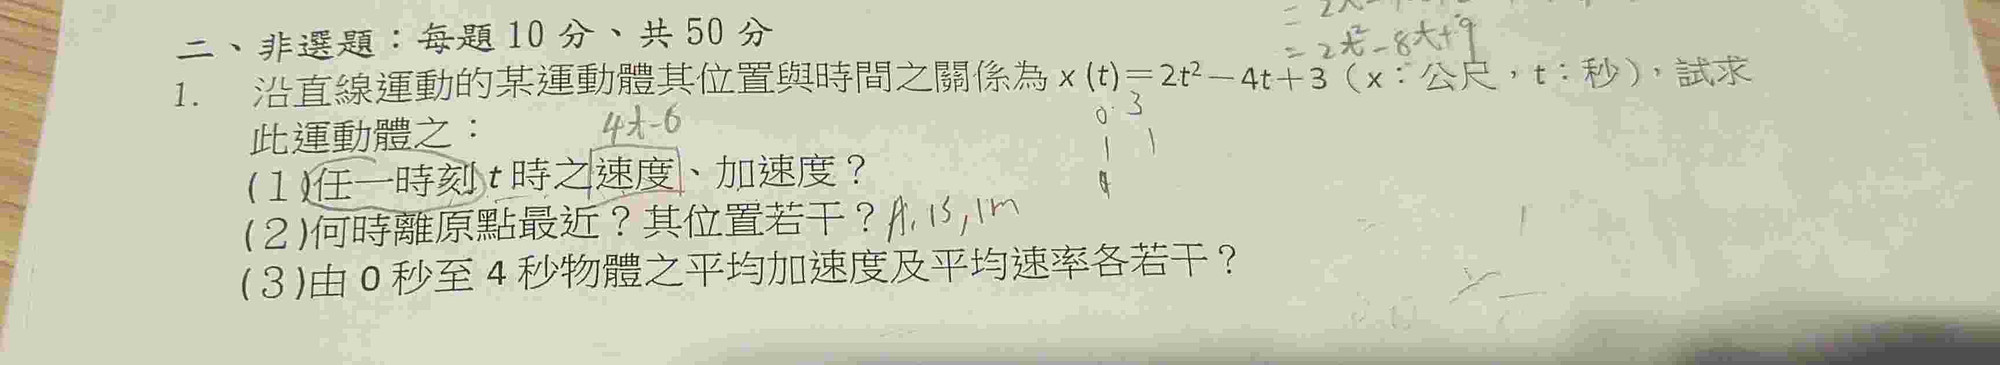 = 2t²-8t+9
二、非選題：每題 10 分、共 50 分
1. 沿直線運動的某運動體其位置與時間之關係為 x (t)＝2t²－4t＋3（x：公尺，t：秒），試求
此運動體之：
4t-6
0 3
1 1
(1)任一時刻 t 時之速度、加速度？
(2)何時離原點最近？其位置若干？A. 1s, 1m
(3)由 0 秒至 4 秒物體之平均加速度及平均速率各若干？